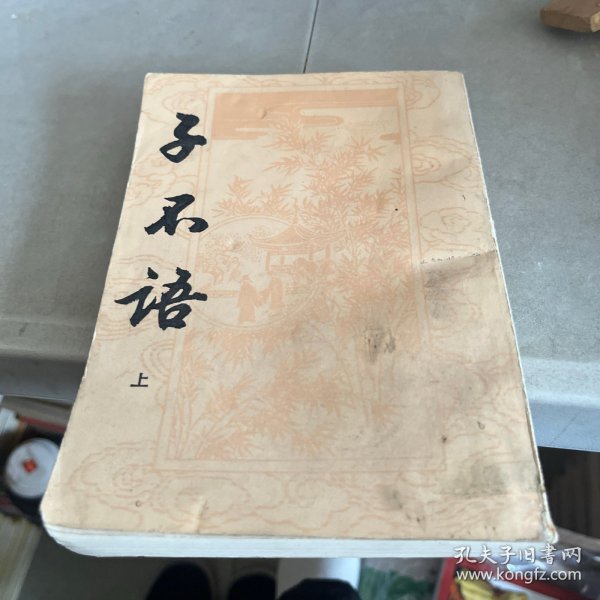 子不语
上
孔夫子旧書网
www.kongfz.com